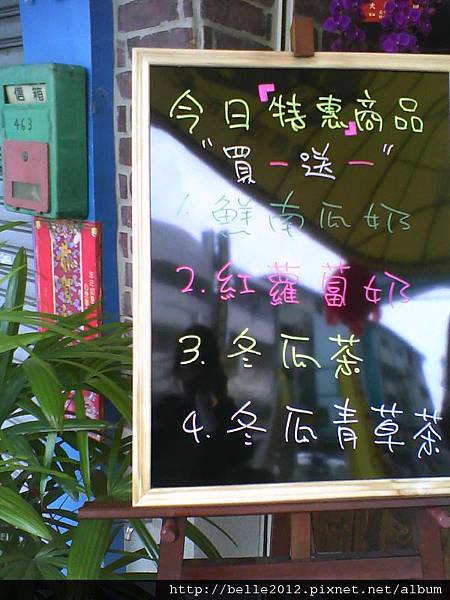 信箱
463
今日「特惠」商品
"買一送一"
1.鮮南瓜奶
2.紅蘿蔔奶
3.冬瓜茶
4.冬瓜青草茶
http://belle2012.pixnet.net/album